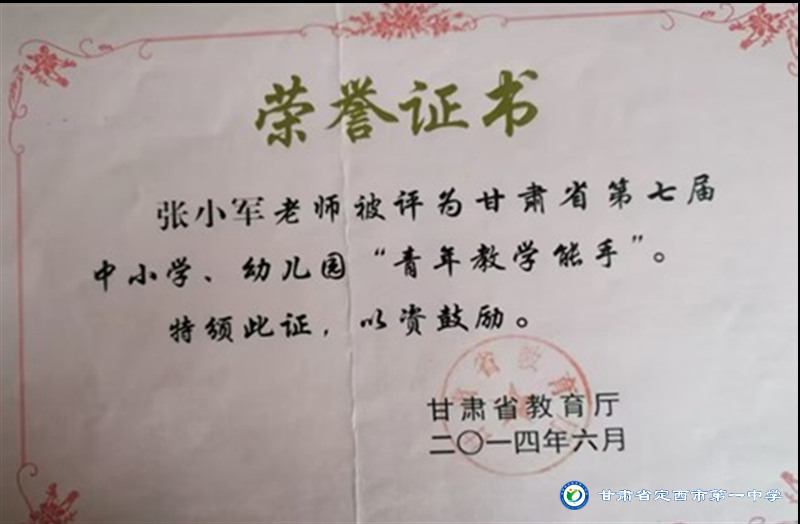 荣誉证书
张小军老师被评为甘肃省第七届
中小学、幼儿园“青年教学能手”。
特颁此证，以资鼓励。
甘肃省教育厅
二〇一四年六月
甘肃省定西市第一中学